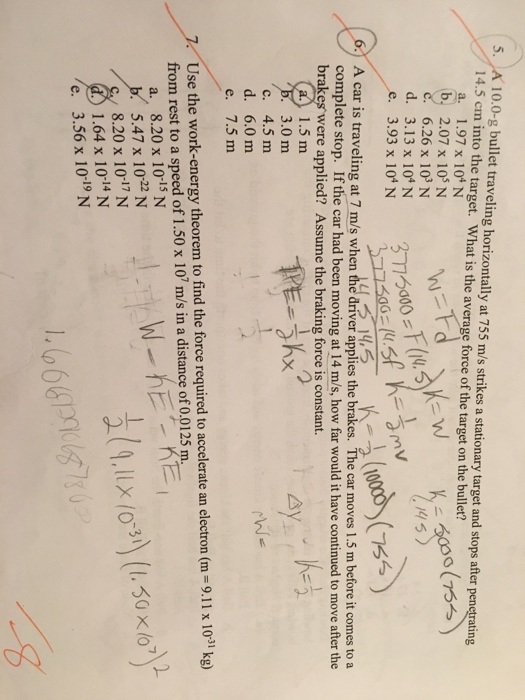 5. A 10.0-g bullet traveling horizontally at 755 m/s strikes a stationary target and stops after penetrating
14.5 cm into the target. What is the average force of the target on the bullet?
a. 1.97 x 10⁴ N
b. 2.07 x 10⁵ N
c. 6.26 x 10³ N
d. 3.13 x 10⁴ N
e. 3.93 x 10⁴ N
W = Fd
K = W
K = 5000(755)
(.145)
3775000 = F(14.5)
3775000 = 14.5F
14.5 14.5
K = ½mv
K = ½(10000)(755)
6. A car is traveling at 7 m/s when the driver applies the brakes. The car moves 1.5 m before it comes to a
complete stop. If the car had been moving at 14 m/s, how far would it have continued to move after the
brakes were applied? Assume the braking force is constant.
a. 1.5 m
b. 3.0 m
c. 4.5 m
d. 6.0 m
e. 7.5 m
PE = ½kx²
K = ½
W =
7. Use the work-energy theorem to find the force required to accelerate an electron (m = 9.11 x 10⁻³¹ kg)
from rest to a speed of 1.50 x 10⁷ m/s in a distance of 0.0125 m.
a. 8.20 x 10⁻¹⁵ N
b. 5.47 x 10⁻²² N
c. 8.20 x 10⁻¹⁷ N
d. 1.64 x 10⁻¹⁴ N
e. 3.56 x 10⁻¹⁹ N
W = KE - KE,
½(9.11x10⁻³¹)(1.50x10⁷)²
-8